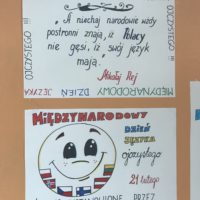 „A niechaj narodowie wżdy
postronni znają, iż Polacy
nie gęsi, iż swój język
mają."
Mikołaj Rej
MIĘDZYNARODOWY DZIEŃ JĘZYKA
OJCZYSTEGO !!!
OJCZYSTEGO
MIĘDZYNARODOWY
DZIEŃ
JĘZYKA
ojczystego
21 lutego
PRZEZ